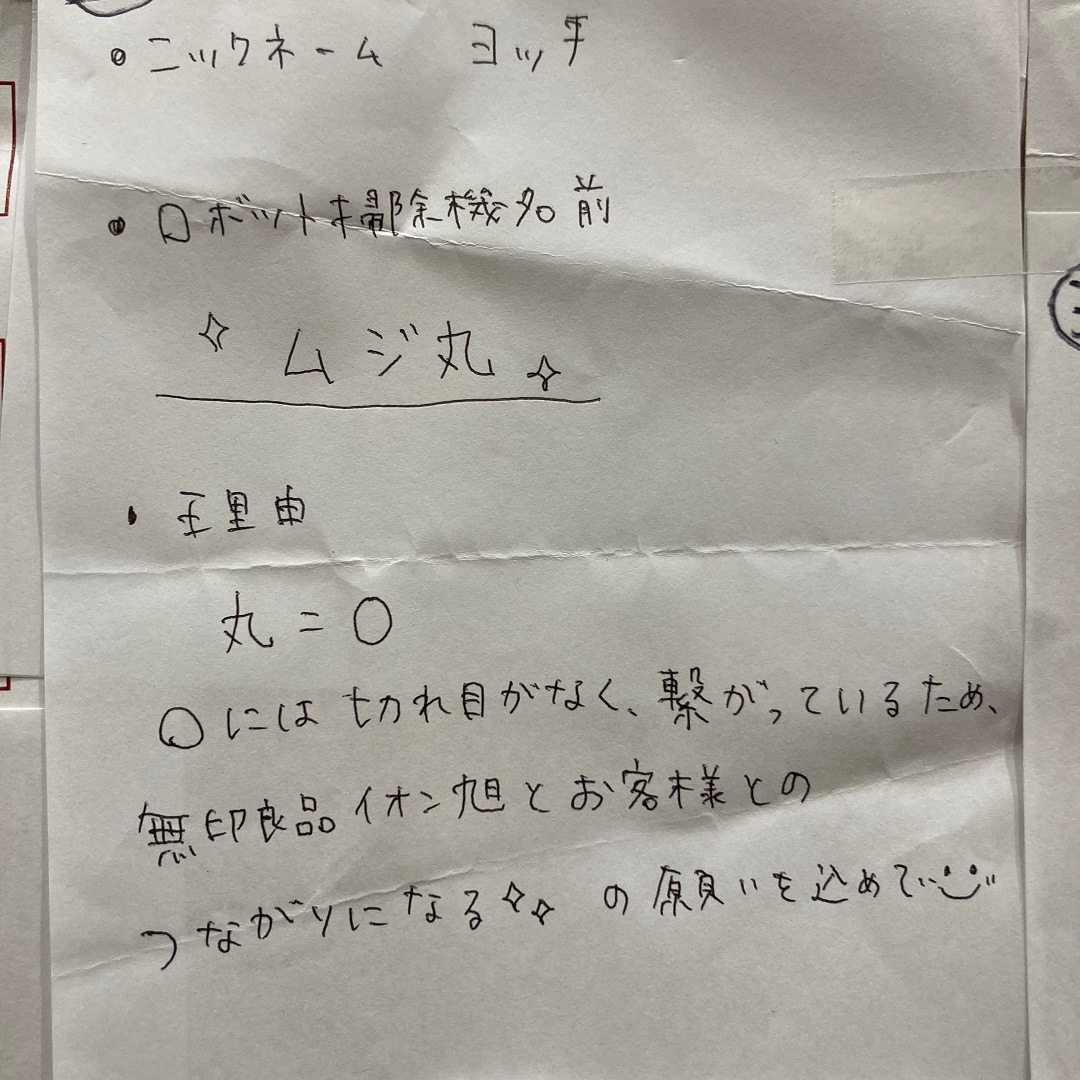 ・ニックネーム ヨッチ
・ロボット掃除機名前
✧ ムジ丸 ✧
・理由
丸=〇
〇には切れ目がなく、繋がっているため、
無印良品イオン旭とお客様との
つながりになる✧✧ の願いを込めて‥